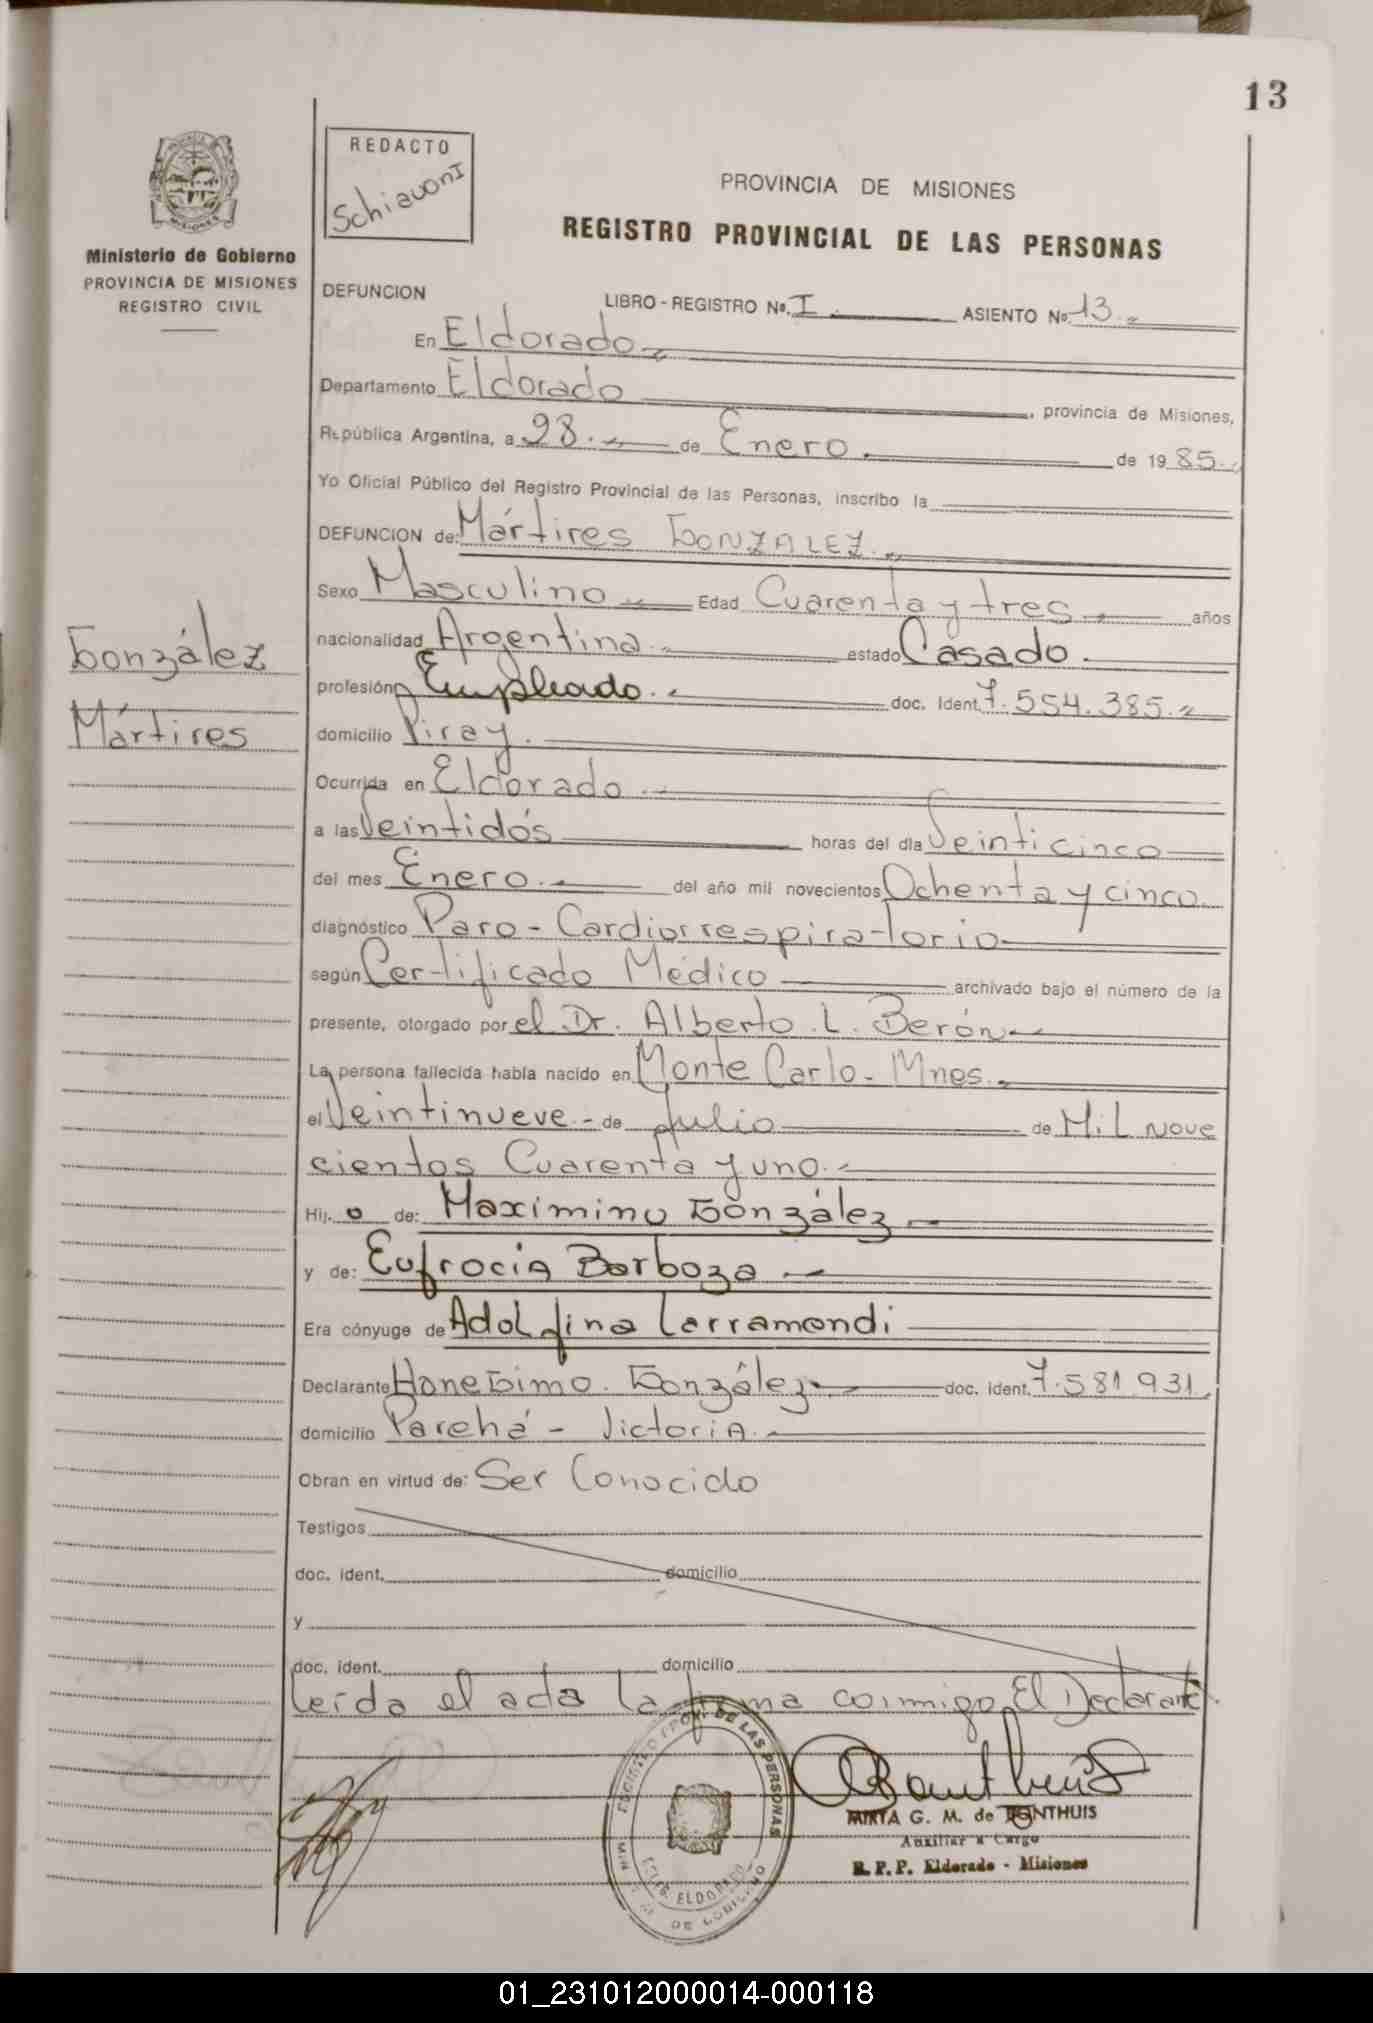 13
REDACTO
Schiavoni
PROVINCIA DE MISIONES
REGISTRO PROVINCIAL DE LAS PERSONAS
Ministerio de Gobierno
PROVINCIA DE MISIONES
REGISTRO CIVIL
DEFUNCION LIBRO - REGISTRO Nº. I ASIENTO Nº 13.
En Eldorado
Departamento Eldorado, provincia de Misiones,
República Argentina, a 28. de Enero. de 1985.
Yo Oficial Público del Registro Provincial de las Personas, inscribo la
DEFUNCION de: Mártires GONZALEZ.
Sexo Masculino Edad Cuarenta y tres años
González
nacionalidad Argentina. estado Casado.
profesión Empleado. doc. Ident. 7.554.385.
Mártires
domicilio Piray.
Ocurrida en Eldorado
a las Veintidós horas del día Veinticinco
del mes Enero. del año mil novecientos Ochenta y cinco
diagnóstico Paro - Cardiorrespiratorio
según Certificado Médico archivado bajo el número de la
presente, otorgado por el Dr. Alberto. L. Berón
La persona fallecida había nacido en Monte Carlo - Mnes.
el Veintinueve - de Julio de Mil Nove
cientos Cuarenta y uno.
Hij. o de: Maximino González
y de: Eufrocia Barboza
Era cónyuge de Adolfina Larramendi
Declarante González doc. ident. 7.581.931
domicilio Parehá - Victoria.
Obran en virtud de: Ser Conocido
Testigos
doc. ident. domicilio
y
doc. ident. domicilio
Leída el acta la firma conmigo El Declarante.
REGISTRO PROV. DE LAS PERSONAS
DELEG. ELDORADO
MIRTA G. M. de BONTHUIS
Auxiliar a Cargo
R. P. P. Eldorado - Misiones
01_231012000014-000118